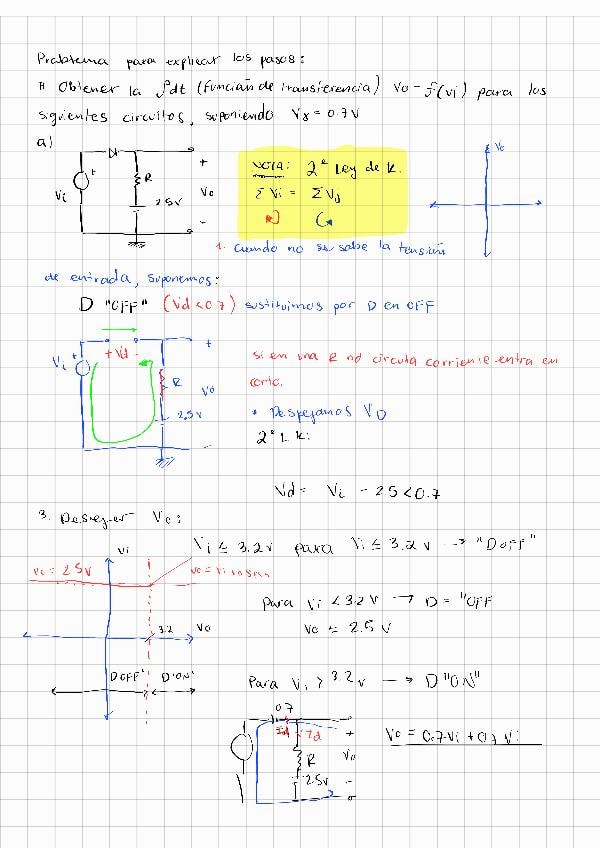 Problema para explicar los pasos:
# Obtener la fdt (función de transferencia) Vo = f(vi) para los
siguientes circuitos, suponiendo Vγ = 0.7 V
a)
Vi
+
R
2.5V
+
Vo
-
NOTA: 2ª Ley de K.
ΣVi = ΣVj
Vo
1. Cuando no se sabe la tensión
de entrada, suponemos:
D "OFF" (Vd < 0.7) sustituimos por D en OFF
Vi
+
+ Vd -
R
2.5V
+
Vo
-
si en una R no circula corriente entra en
corto.
• Despejamos VD
2ª L K:
Vd = Vi - 2.5 < 0.7
3. Vo:
Vi ≤ 3.2 v para Vi ≤ 3.2 v → "D OFF"
Vi
Vo = 2.5V
3.2
Vo
D OFF" D"ON"
Para Vi < 3.2 v → D = "OFF
Vo = 2.5 V
Para Vi > 3.2 v → D "ON"
0.7
R
2.5V
+
Vo
-
Vo = 0.7·Vi + 0.7 Vi